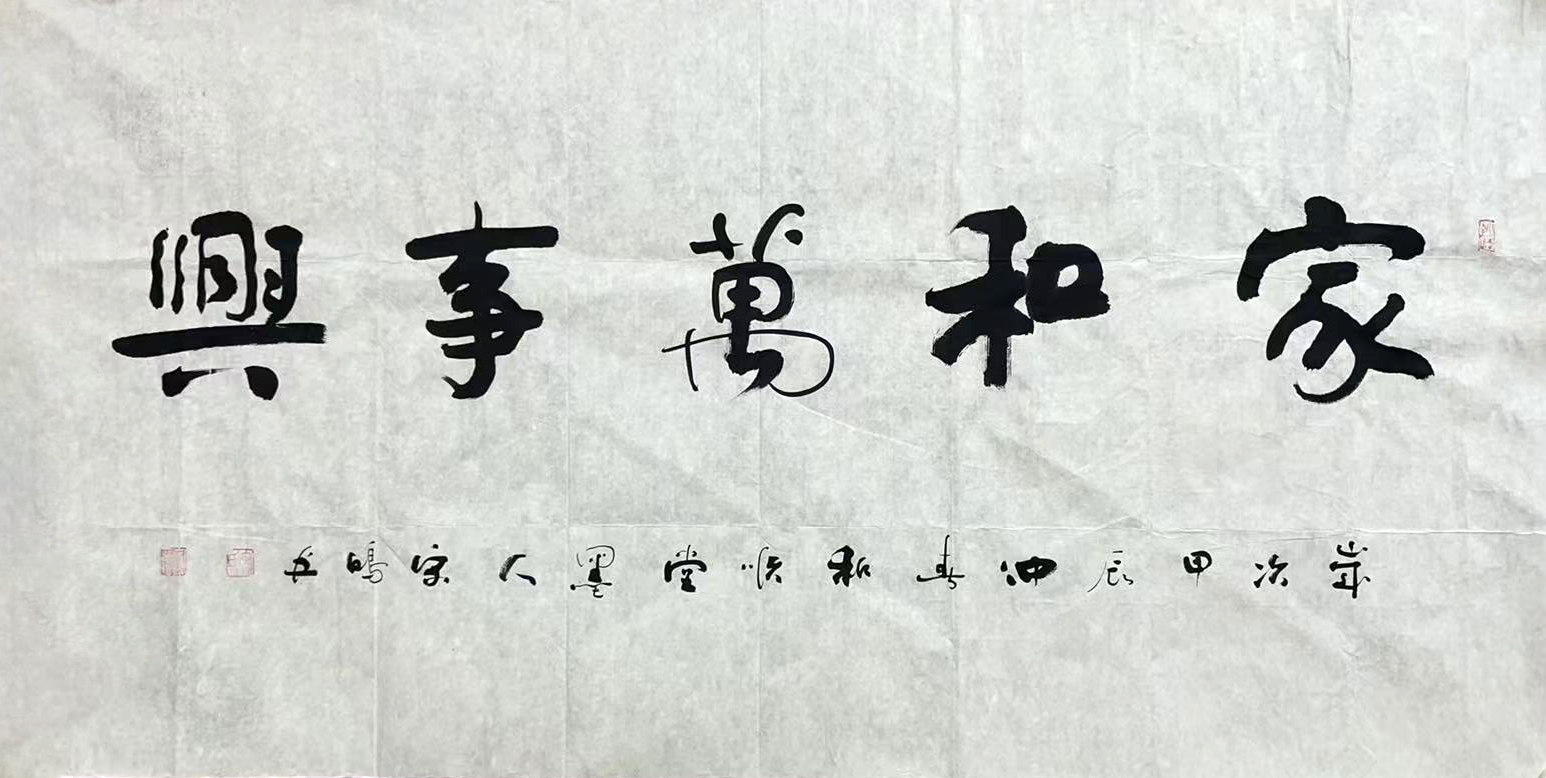 家和萬事興
歲次甲辰仲春和順堂墨人宗鳴书